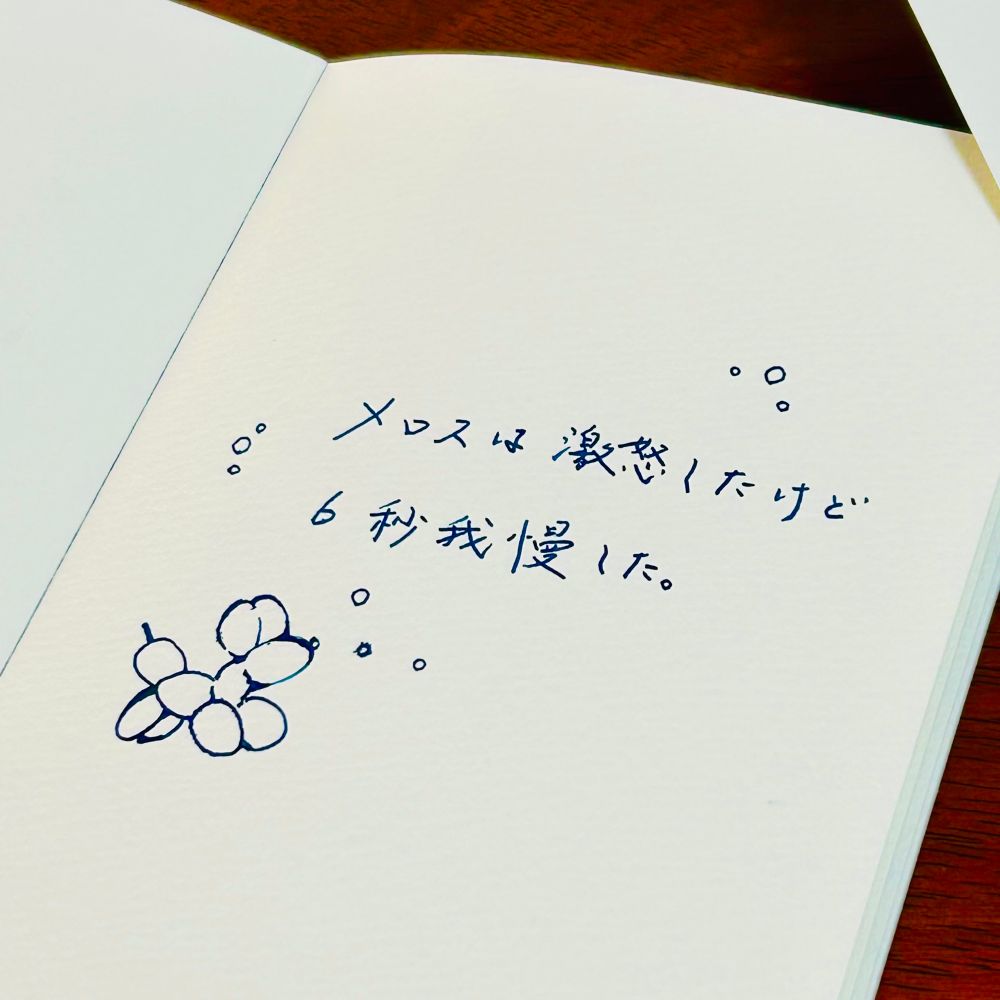 メロスは激怒したけど
6秒我慢した。